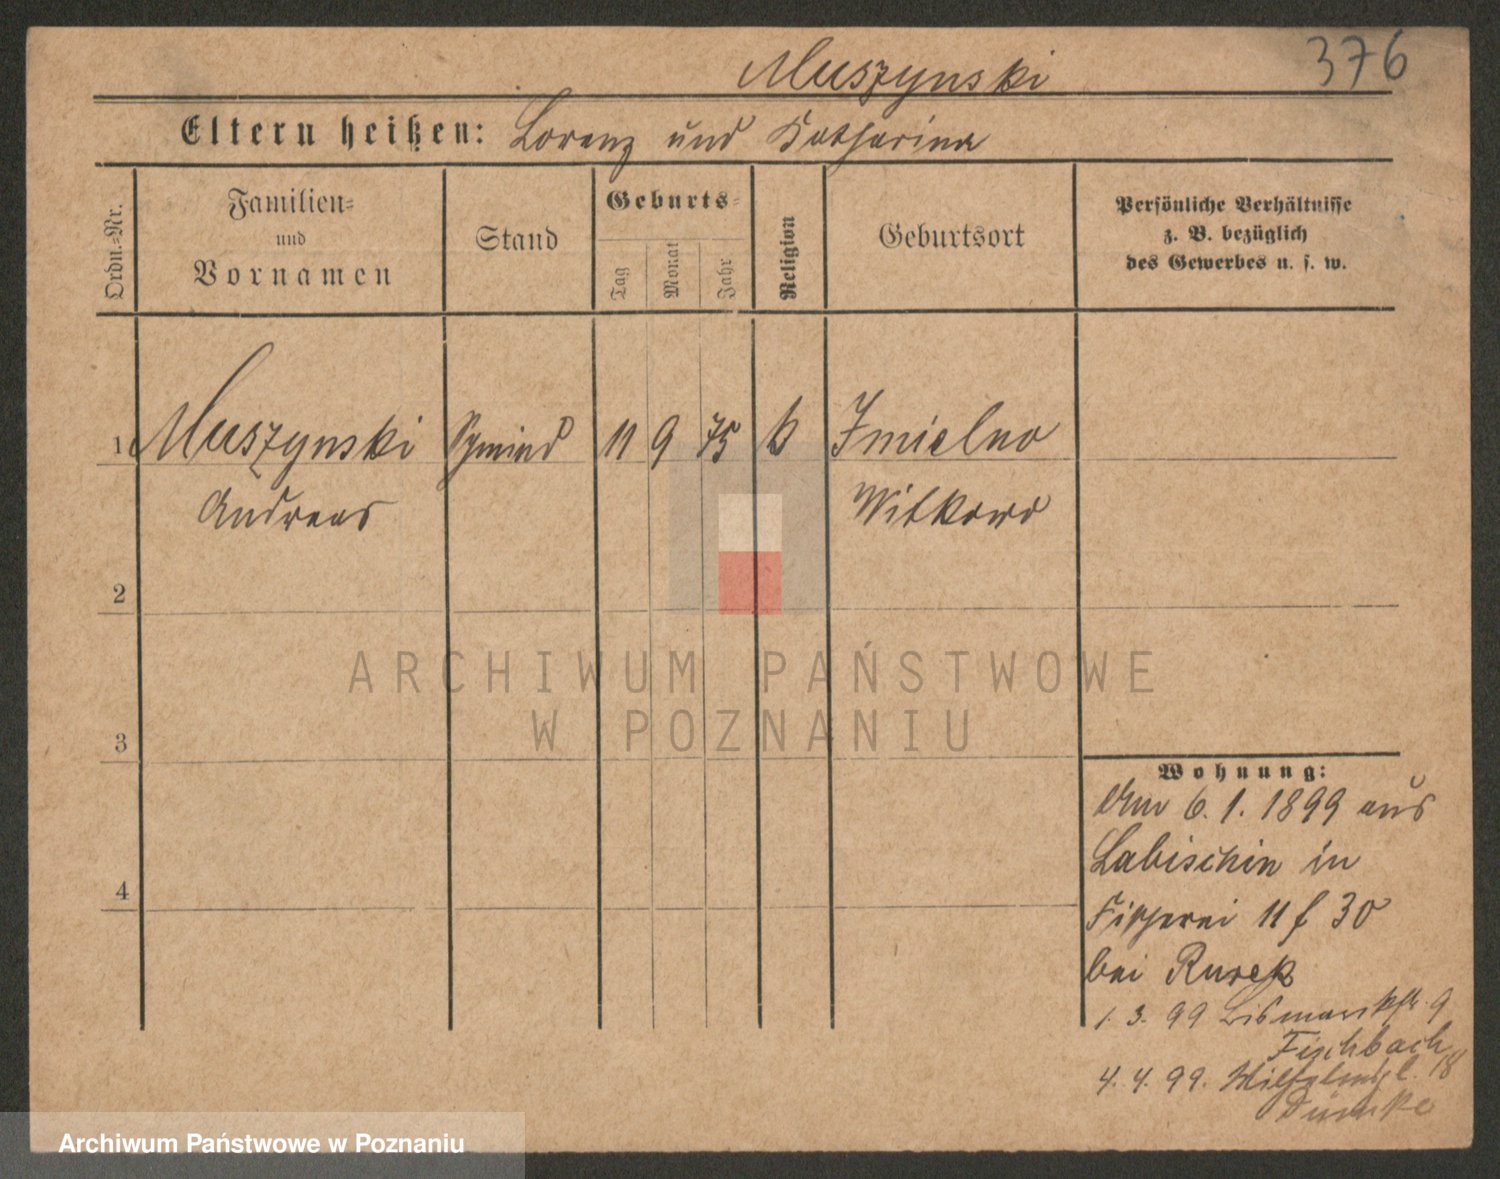 Muszynski 376
Eltern heißen: Lorenz und Katharina
Ordn.-Nr.
Familien-
und
Vornamen
Stand
Geburts-
Tag
Monat
Jahr
Religion
Geburtsort
Persönliche Verhältnisse
z. B. bezüglich
des Gewerbes u. s. w.
1 Muszynski 11 9 75 k Imielno
Andreas Witkowo
2
3
4
Wohnung:
Am 6. 1. 1899 aus
Labischin in
Fischerei 11 f 30
bei Rusek
1. 3. 99 Bismarckstr. 9
Fischbach
4. 4. 99. Wilhelmspl. 18
Dümke
ARCHIWUM PAŃSTWOWE
W POZNANIU
Archiwum Państwowe w Poznaniu